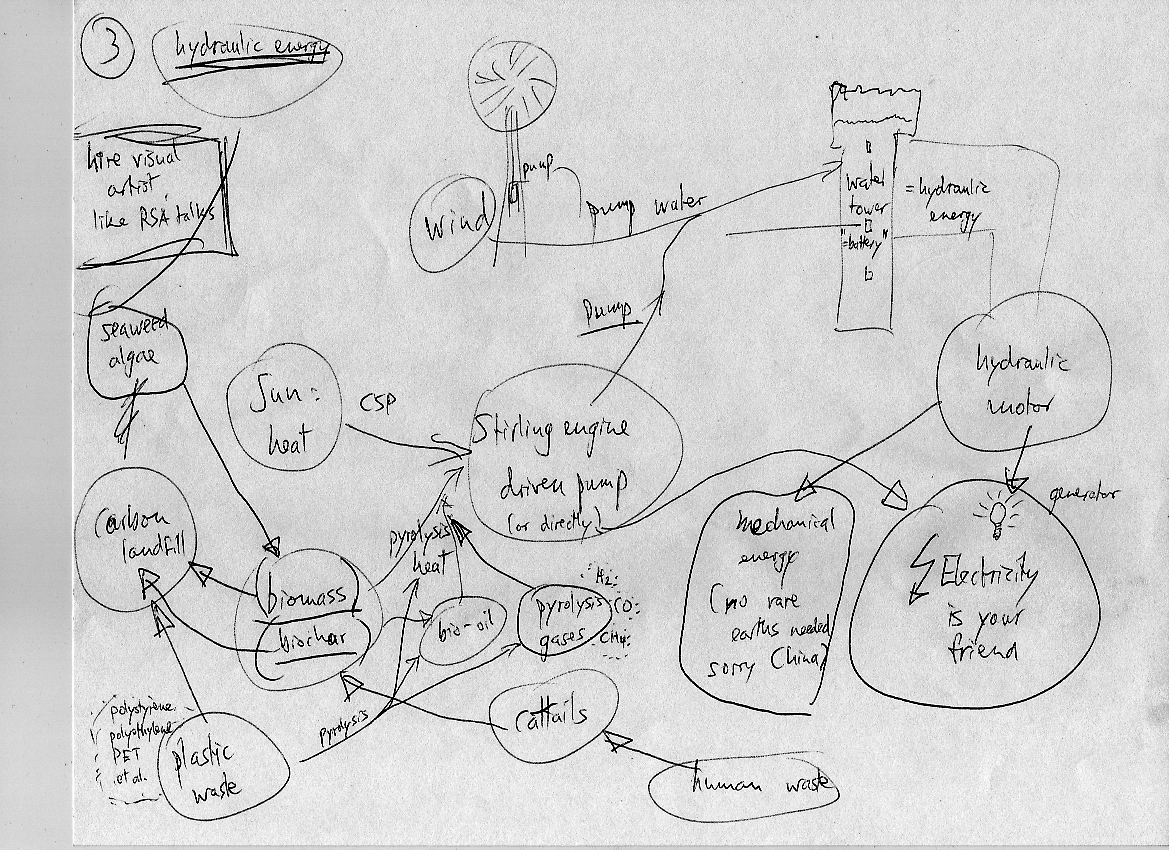 3
hydraulic energy
hire visual
artist,
like RSA talks
pump
wind
pump water
water
tower
"=battery"
=hydraulic
energy
pump
seaweed
algae
Sun =
heat
CSP
Stirling engine
driven pump
(or directly)
hydraulic
motor
generator
carbon
landfill
biomass
biochar
pyrolysis
heat
bio-oil
pyrolysis
gases
H2
CO
CH4
mechanical
energy
(no rare
earths needed
sorry China)
Electricity
is your
friend
polystyrene
polyethylene
PET
et al.
plastic
waste
pyrolysis
cattails
human waste